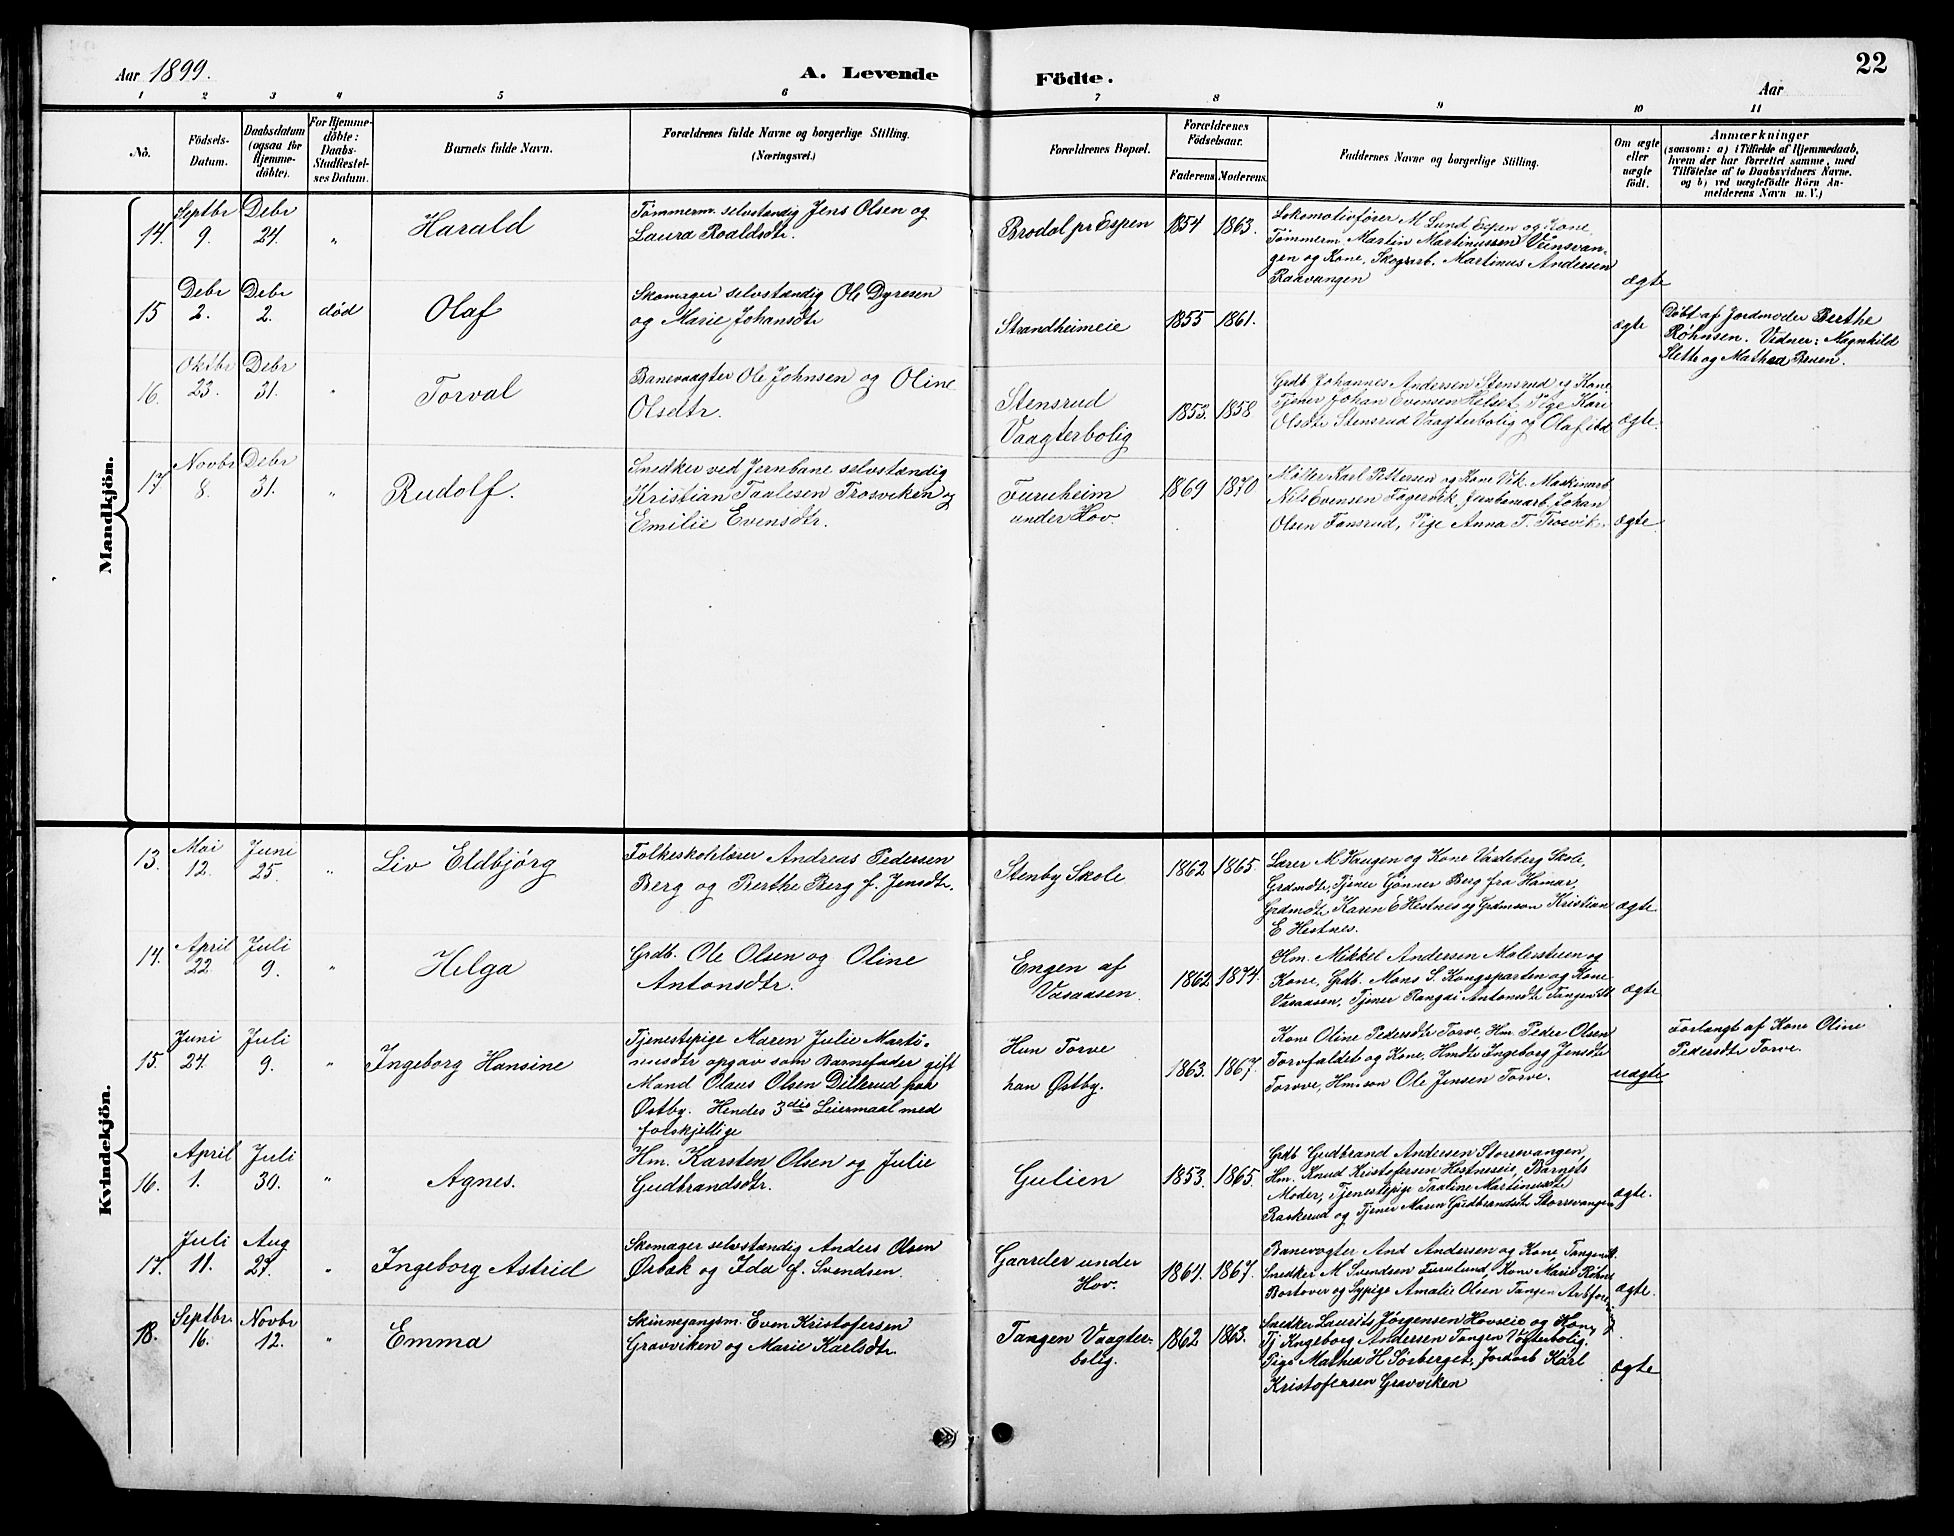 Aar 1899.
A. Levende Födte.
Aar
22
1 2 3 4 5 6 7 8 9 10 11
No.
Födsels-
Datum.
Daabsdatum
(ogsaa for
Hjemme-
döbte).
For Hjemme-
döbte:
Daabs-
Stadfæstel-
ses Datum.
Barnets fulde Navn.
Forældrenes fulde Navne og borgerlige Stilling.
(Næringsvei.)
Forældrenes Bopæl.
Forældrenes
Födselsaar.
Faderens Moderens.
Faddernes Navne og borgerlige Stilling.
Om ægte
eller
uægte
födt.
Anmærkninger
(saasom: a) i Tilfælde af Hjemmedaab,
hvem der har forrettet samme, med
Tilföielse af to Daabsvidners Navne.
og b) ved uægtefödte Börn An-
melderens Navn m. V.)
Mandkjön.
14. Septbr 9. Debr 24. " Harald
Tømmerm. selvstændig Jens Olsen og
Laura Roaldsdtr.
Brodal pr Espen 1854 1863.
Lokomotivfører M Lund Espen og Kone,
Tømmerm. Martin Martinussen Vensvan-
gen og Kone, Skogsarb. Martinus Andersen
Raavangen
ægte
15 Debr 2. Debr 2. død Olaf
Skomager selvstændig Ole Dyresen
og Marie Johansdtr
Strandheimeie 1855 1861.
ægte
Døbt af Jordmoder Berthe
Røhnsen. Vidner: Ragnhild
Slette og Mathea Breen.
16. Oktbr 23. Debr 31. " Torval
Banevaagter Ole Johnsen og Oline
Olsdtr.
Stensrud
Vaagterbolig
1853. 1858
Grdb Johannes Andersen Stensrud og Kone,
Tjener Johan Evensen Helset, Pige Kari
Olsdtr Stensrud Vaagterbolig og Olaf ibd
ægte.
17 Novbr 8. Debr 31. " Rudolf.
Snedker ved Jernbane selvstændig
Kristian Taalesen Trosviken og
Emilie Evensdtr.
Furuheim
under Hov.
1869 1870
Møller Karl Pettersen og Kone Vik, Maskinarb
Nils Evensen Fagervik, Jernbanearb. Johan
Olsen Fonsrud, Pige Anna T. Trosvik.
ægte
Kvindekjön.
13. Mai 12. Juni 25. " Liv Eldbjörg
Folkeskolelærer Andreas Pedersen
Berg og Berthe Berg f. Jensdtr.
Stenby Skole 1862 1865.
Lærer M Haugen og Kone Vardeberg Skole,
Grdmdtr, Tjener Gönner Berg fra Hamar,
Grdmdtr. Karen E Hestnes og Grdmson Kristian
E Hestnes.
ægte
14. April 22. Juli 9. " Helga
Grdb. Ole Olsen og Oline
Antonsdtr.
Engen af
Vasaasen.
1862 1874.
Hm. Mikkel Andersen Malerstuen og
Kone, Grdb. Mons S. Kongsparten og Kone
Vasaasen, Tjener Rangdi Antonsdtr Tangen St
ægte
15. Juni 24. Juli 9. " Ingeborg Hansine
Tjenestepige Maren Julie Marti-
nusdtr opgav som Barnefader gift
Mand Olaus Olsen Dillerud paa
Østby. Hendes 3die Leiermaal med
forskjellige
Hun Torve
han Østby.
1863. 1867.
Kone Oline Pedersdtr Torve, Hm. Peder Olsen
Torvfaldet og Kone, Hmdtr Ingeborg Jensdtr
Torve, Hmson Ole Jensen Torve.
uægte
Forlangt af Kone Oline
Pedersdtr Torve.
16. April 1. Juli 30. " Agnes.
Hm. Karsten Olsen og Julie
Gudbrandsdtr.
Gulien 1853. 1865.
Grdb Gudbrand Andersen Storrevangen,
Hm. Knud Kristofersen Hestneseie, Barnets
Moder, Tjenestepige Taaline Martinusdtr
Raskerud og Tjener Maren Gudbrandsdtr Storrevangen
ægte.
17. Juli 11. Aug 27. " Ingeborg Astrid
Skomager selvstændig Anders Olsen
Ørbæk og Ida f. Svendsen.
Gaarder under
Hov.
1864. 1867.
Banevogter And Andersen og Kone Tangen St.
Snedker M Svendsen Furulund, Kone Marie Röhne
Bortover og Sypige Amalie Olsen Tangen
ægte.
18. Septbr 16. Novbr 12. " Emma
Skinnegangsm. Even Kristofersen
Gravviken og Marie Karlsdtr.
Tangen Vaagter-
bolig.
1862 1863.
Snedker Laurits Jørgensen Hovseie og Kone,
Tj Ingeborg Andersen Tangen Vogterbolig.
Pige Mathea H Sörberget, Jordarb Karl
Kristofersen Gravviken
ægte